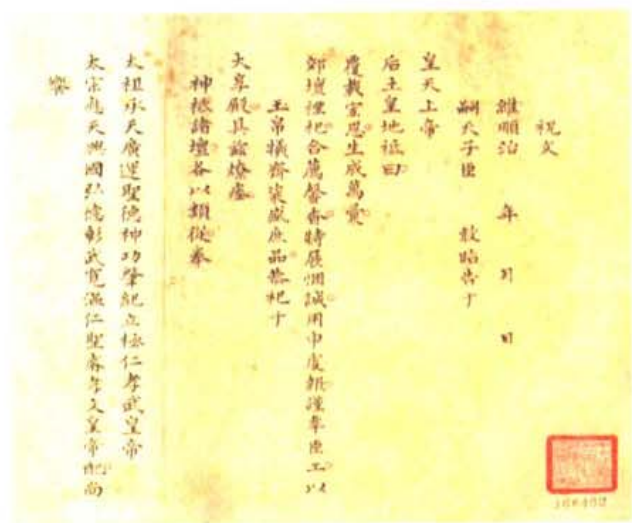 祝文
維順治 年 月 日
嗣天子臣 敢昭告于
皇天上帝
后土皇地祇曰
覆載宏恩生成萬彙
郊壇禋祀合薦馨香特展悃誠用申虔報謹率臣工以
玉帛犧齊粢盛庶品恭祀于
大享殿具設燎瘞
神祇諸壇各以類從奉
太祖承天廣運聖德神功肇紀立極仁孝武皇帝
太宗應天興國弘德彰武寬溫仁聖睿孝文皇帝配尚
饗